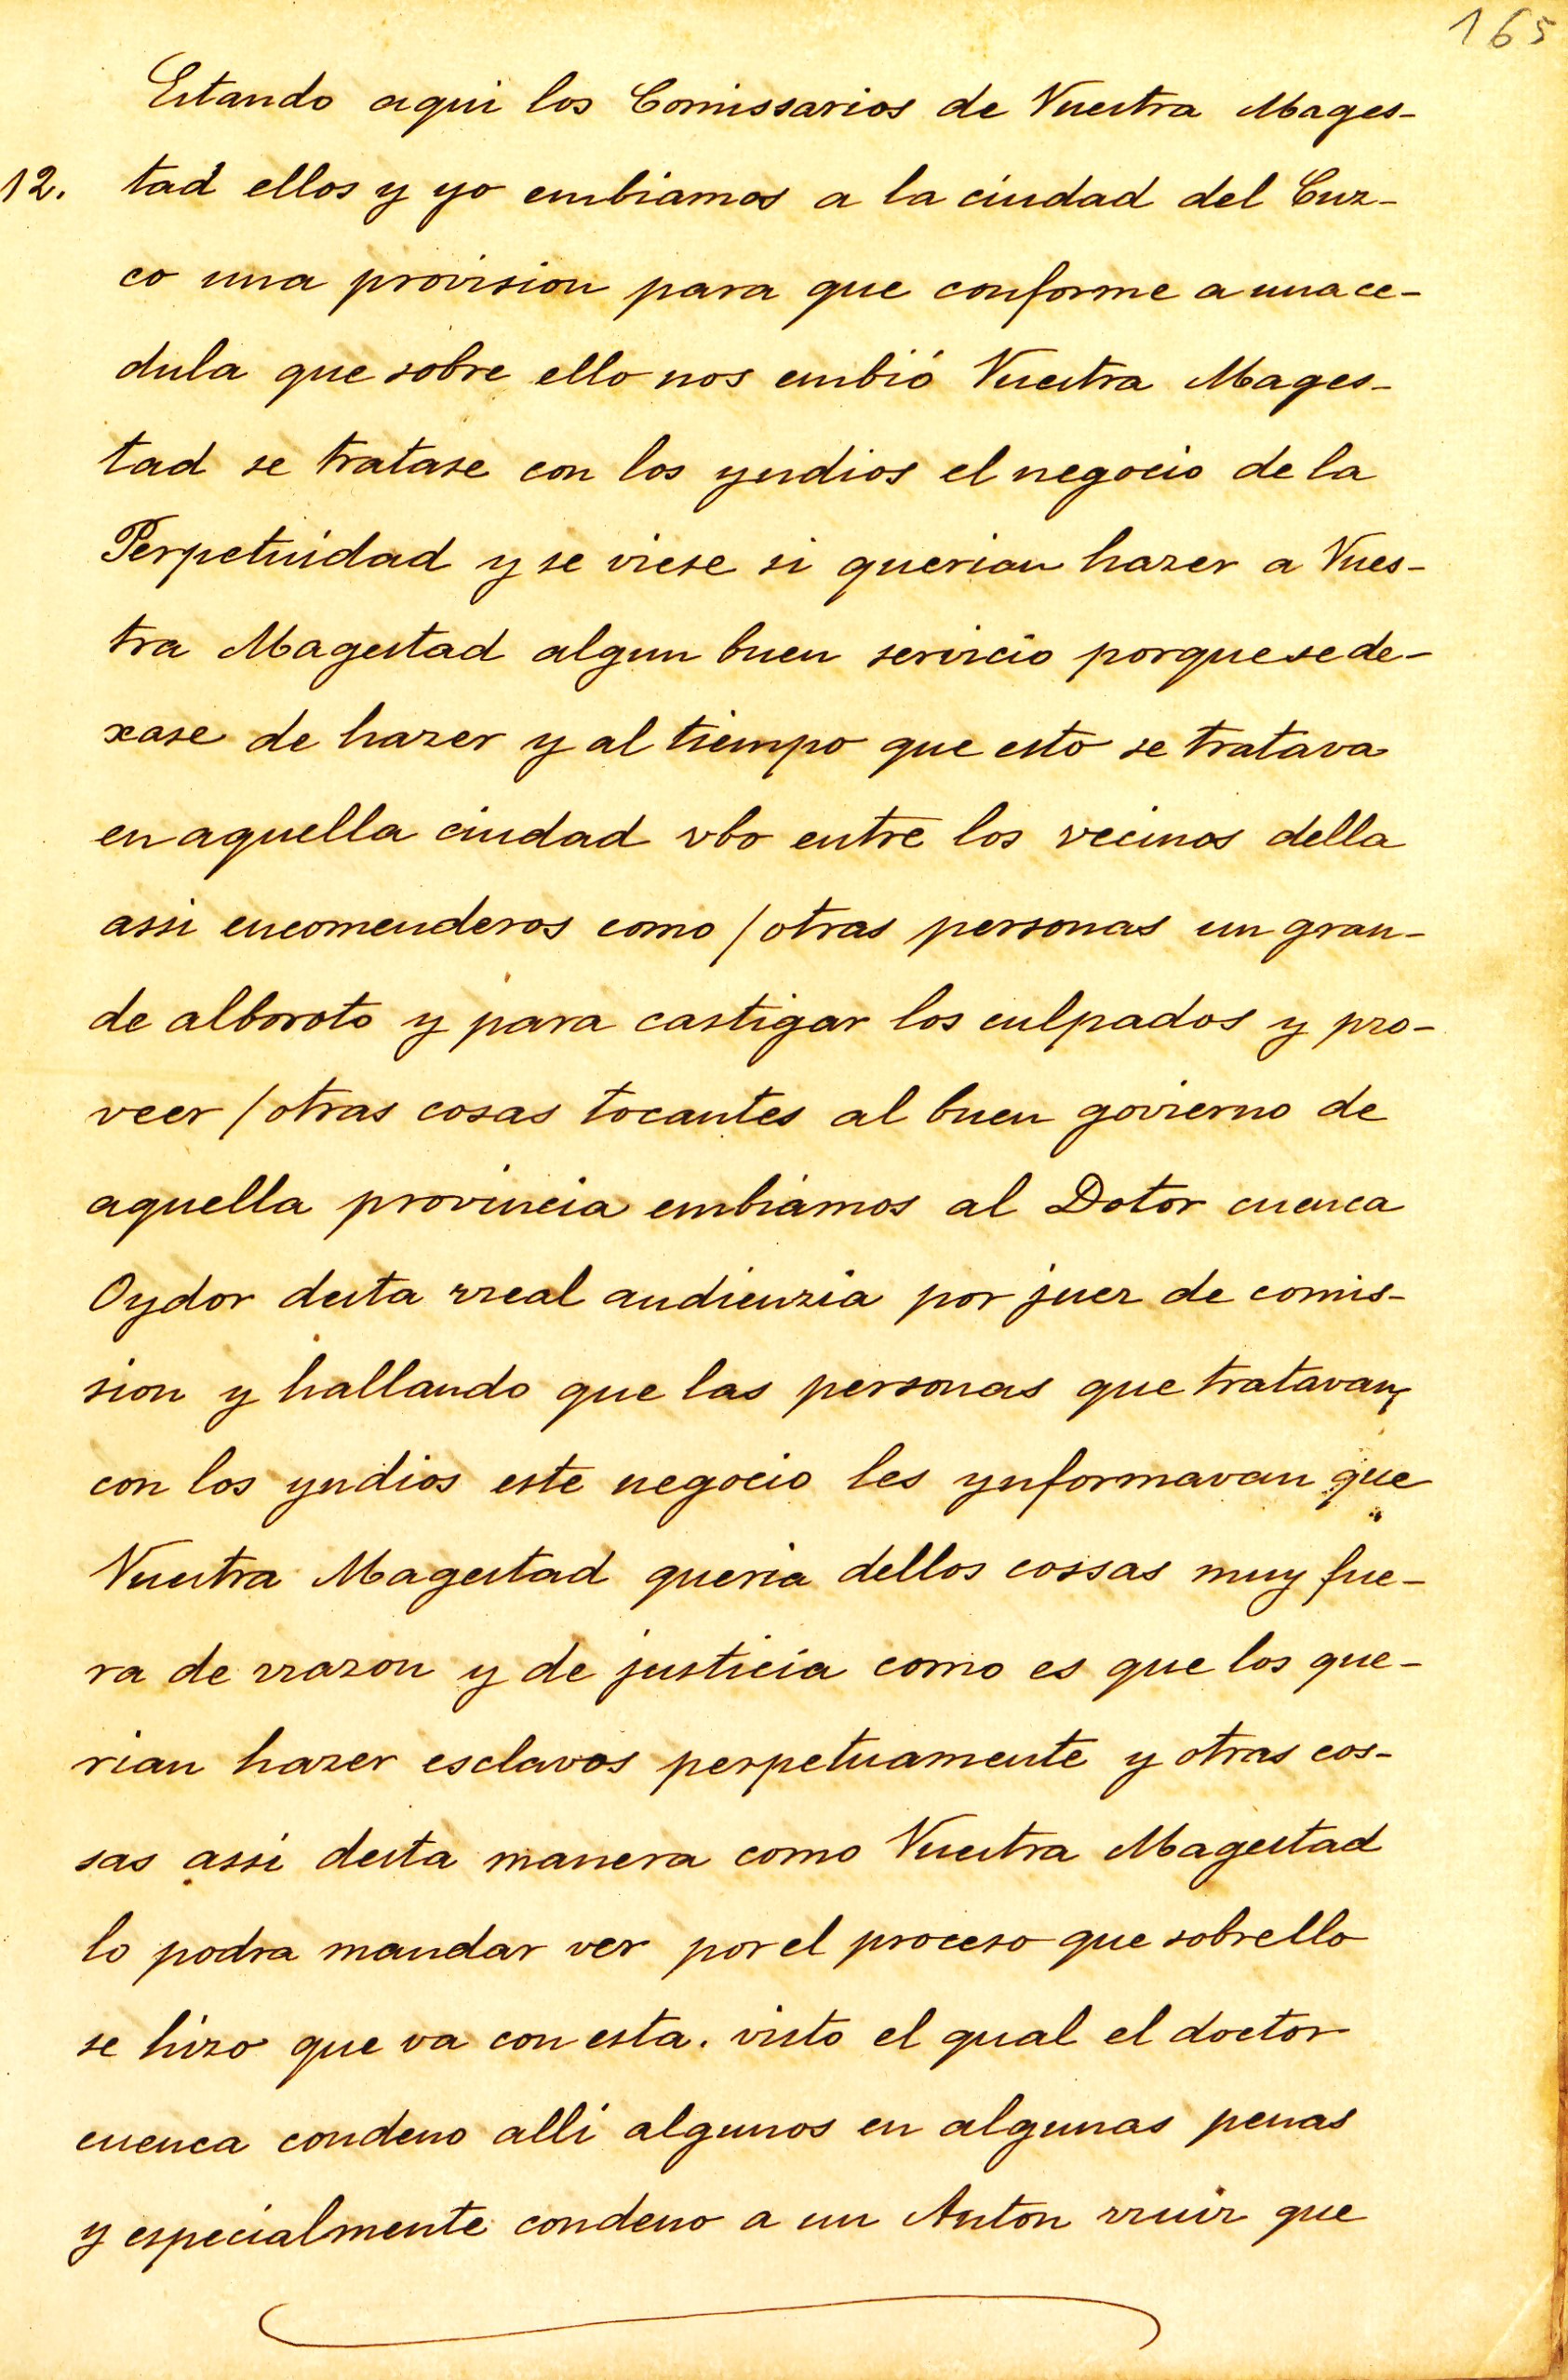 165
Estando aqui los Comissarios de Vuestra Mages-
12. tad ellos y yo embiamos a la ciudad del Cuz-
co una provision para que conforme a una ce-
dula que sobre ello nos embió Vuestra Mages-
tad se tratase con los yndios el negocio de la
Perpetuidad y se viese si querian hazer a Vues-
tra Magestad algun buen servicio porque se de-
xase de hazer y al tiempo que esto se tratava
en aquella ciudad vbo entre los vecinos della
assi encomenderos como /otras personas un gran-
de alboroto y para castigar los culpados y pro-
veer /otras cosas tocantes al buen govierno de
aquella provincia embiamos al Dotor cuenca
Oydor desta rreal audienzia por juez de comis-
sion y hallando que las personas que tratavan
con los yndios este negocio les ynformavan que
Vuestra Magestad queria dellos cossas muy fue-
ra de rrazon y de justicia como es que los que-
rian hazer esclavos perpetuamente y otras cos-
sas assi desta manera como Vuestra Magestad
lo podra mandar ver por el proceso que sobrello
se hizo que va con esta. visto el qual el doctor
cuenca condeno alli algunos en algunas penas
y especialmente condeno a un Anton rruiz que